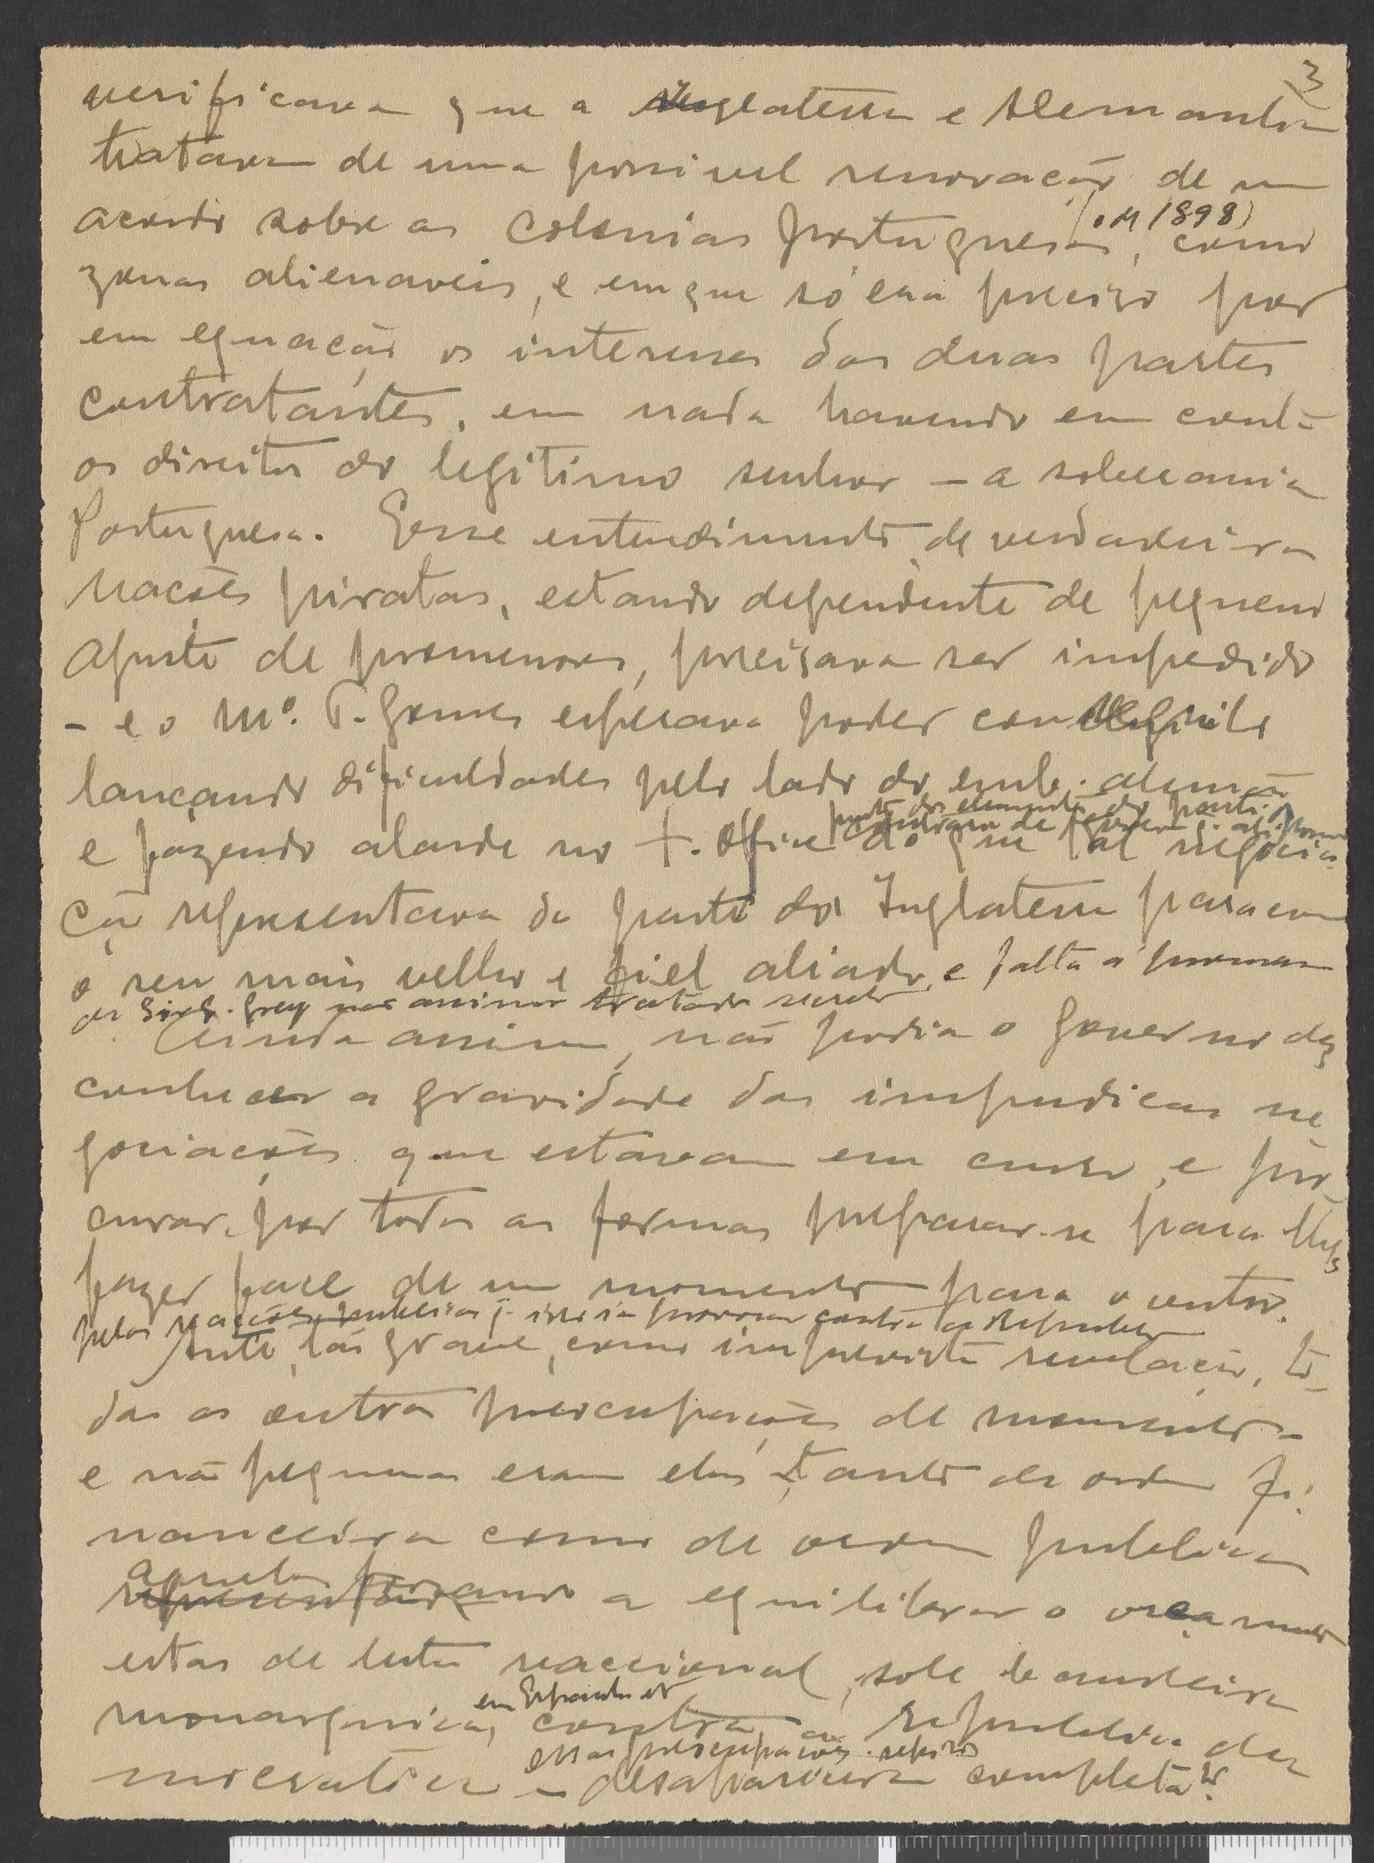 3
verificava que a Inglaterra e Alemanha
tratavam de uma possivel renovação de um
acordo sobre as colonias portuguesas, como
(o de 1898)
zonas alienaveis, e em que só era preciso pôr
em equação os interesses das duas partes
contratantes, em nada havendo em conta
os direitos do legitimo senhor – a soberania
Portuguesa. Esse entendimento de verdadeiras
nações piratas, estando dependente de pequeno
ajuste de promenores, precisava ser impedido
– e o Mº. T. Gomes esperava poder conseguilo
lançando dificuldades pelo lado do emb. alemão
e fazendo alarde no F. Office do que tal negocia-
ção representava da parte da Inglaterra para com
o seu mais velho e fiel aliado, e falta á promessa
de Sir E. Grey não assinar tratado secreto
Ainda assim, não podia o governo des
conhecer a gravidade das impudicas ne
gociações que estavam em curso, e pro-
curar por todas as formas preparar-se para lhes
fazer face de um momento para o outro.
Ante tão grave, como imprevista revelação, to-
das as outras preocupações de momento –
e não pequenas eram elas, tanto de ordem fi-
nanceira como de ordem publica
aquelas forçando a equilibrar o orçamento
estas de luta reaccional, sob bandeira
monarquica, contra a Republica de
mocratica – desapareceram completa